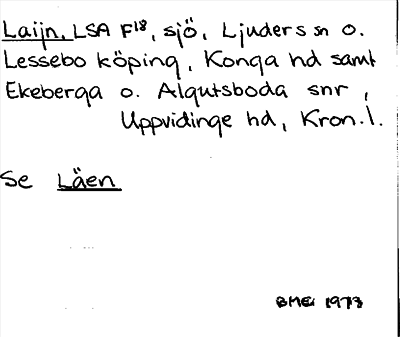 Laijn, LSA F18, sjö, Ljuders sn o.
Lessebo köping, Konga hd samt
Ekeberga o. Algutsboda snr,
Uppvidinge hd, Kron. l.
Se Läen
BMEi 1973